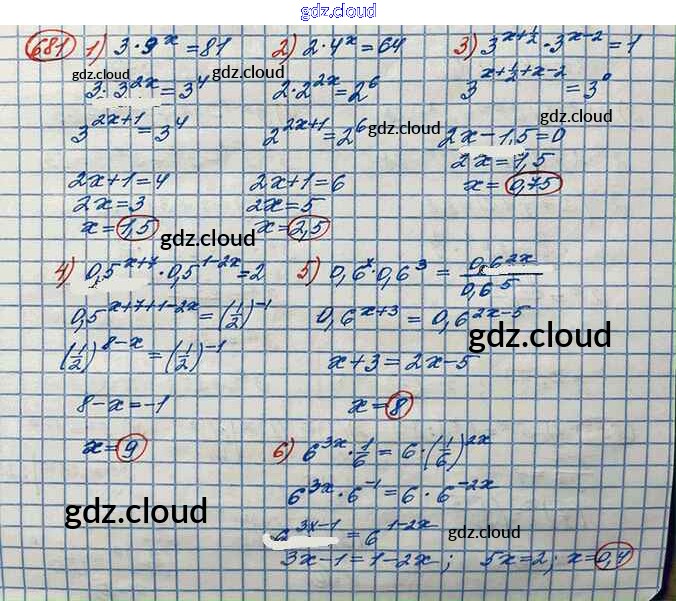 gdz.cloud
gdz.cloud
681 1) 3·9^x=81
gdz.cloud gdz.cloud
3·3^2x=3^4
3^2x+1=3^4
2x+1=4
2x=3
x=1,5
2) 2·4^x=64
2·2^2x=2^6
2^2x+1=2^6 gdz.cloud
2x+1=6
2x=5
x=2,5
3) 3^x+1/2·3^x-2=1
3^x+1/2+x-2=3^0
gdz.cloud
2x-1,5=0
2x=1,5
x=0,75
gdz.cloud
4) 0,5^x+7·0,5^1-2x=2
0,5^x+7+1-2x=(1/2)^-1
(1/2)^8-x=(1/2)^-1
8-x=-1
x=9
5) 0,6^x·0,6^3=0,6^2x/0,6^5
0,6^x+3=0,6^2x-5
gdz.cloud
x+3=2x-5
x=8
6) 6^3x·1/6=6·(1/6)^2x
6^3x·6^-1=6·6^-2x
gdz.cloud
6^3x-1=6^1-2x gdz.cloud
3x-1=1-2x; 5x=2; x=0,4